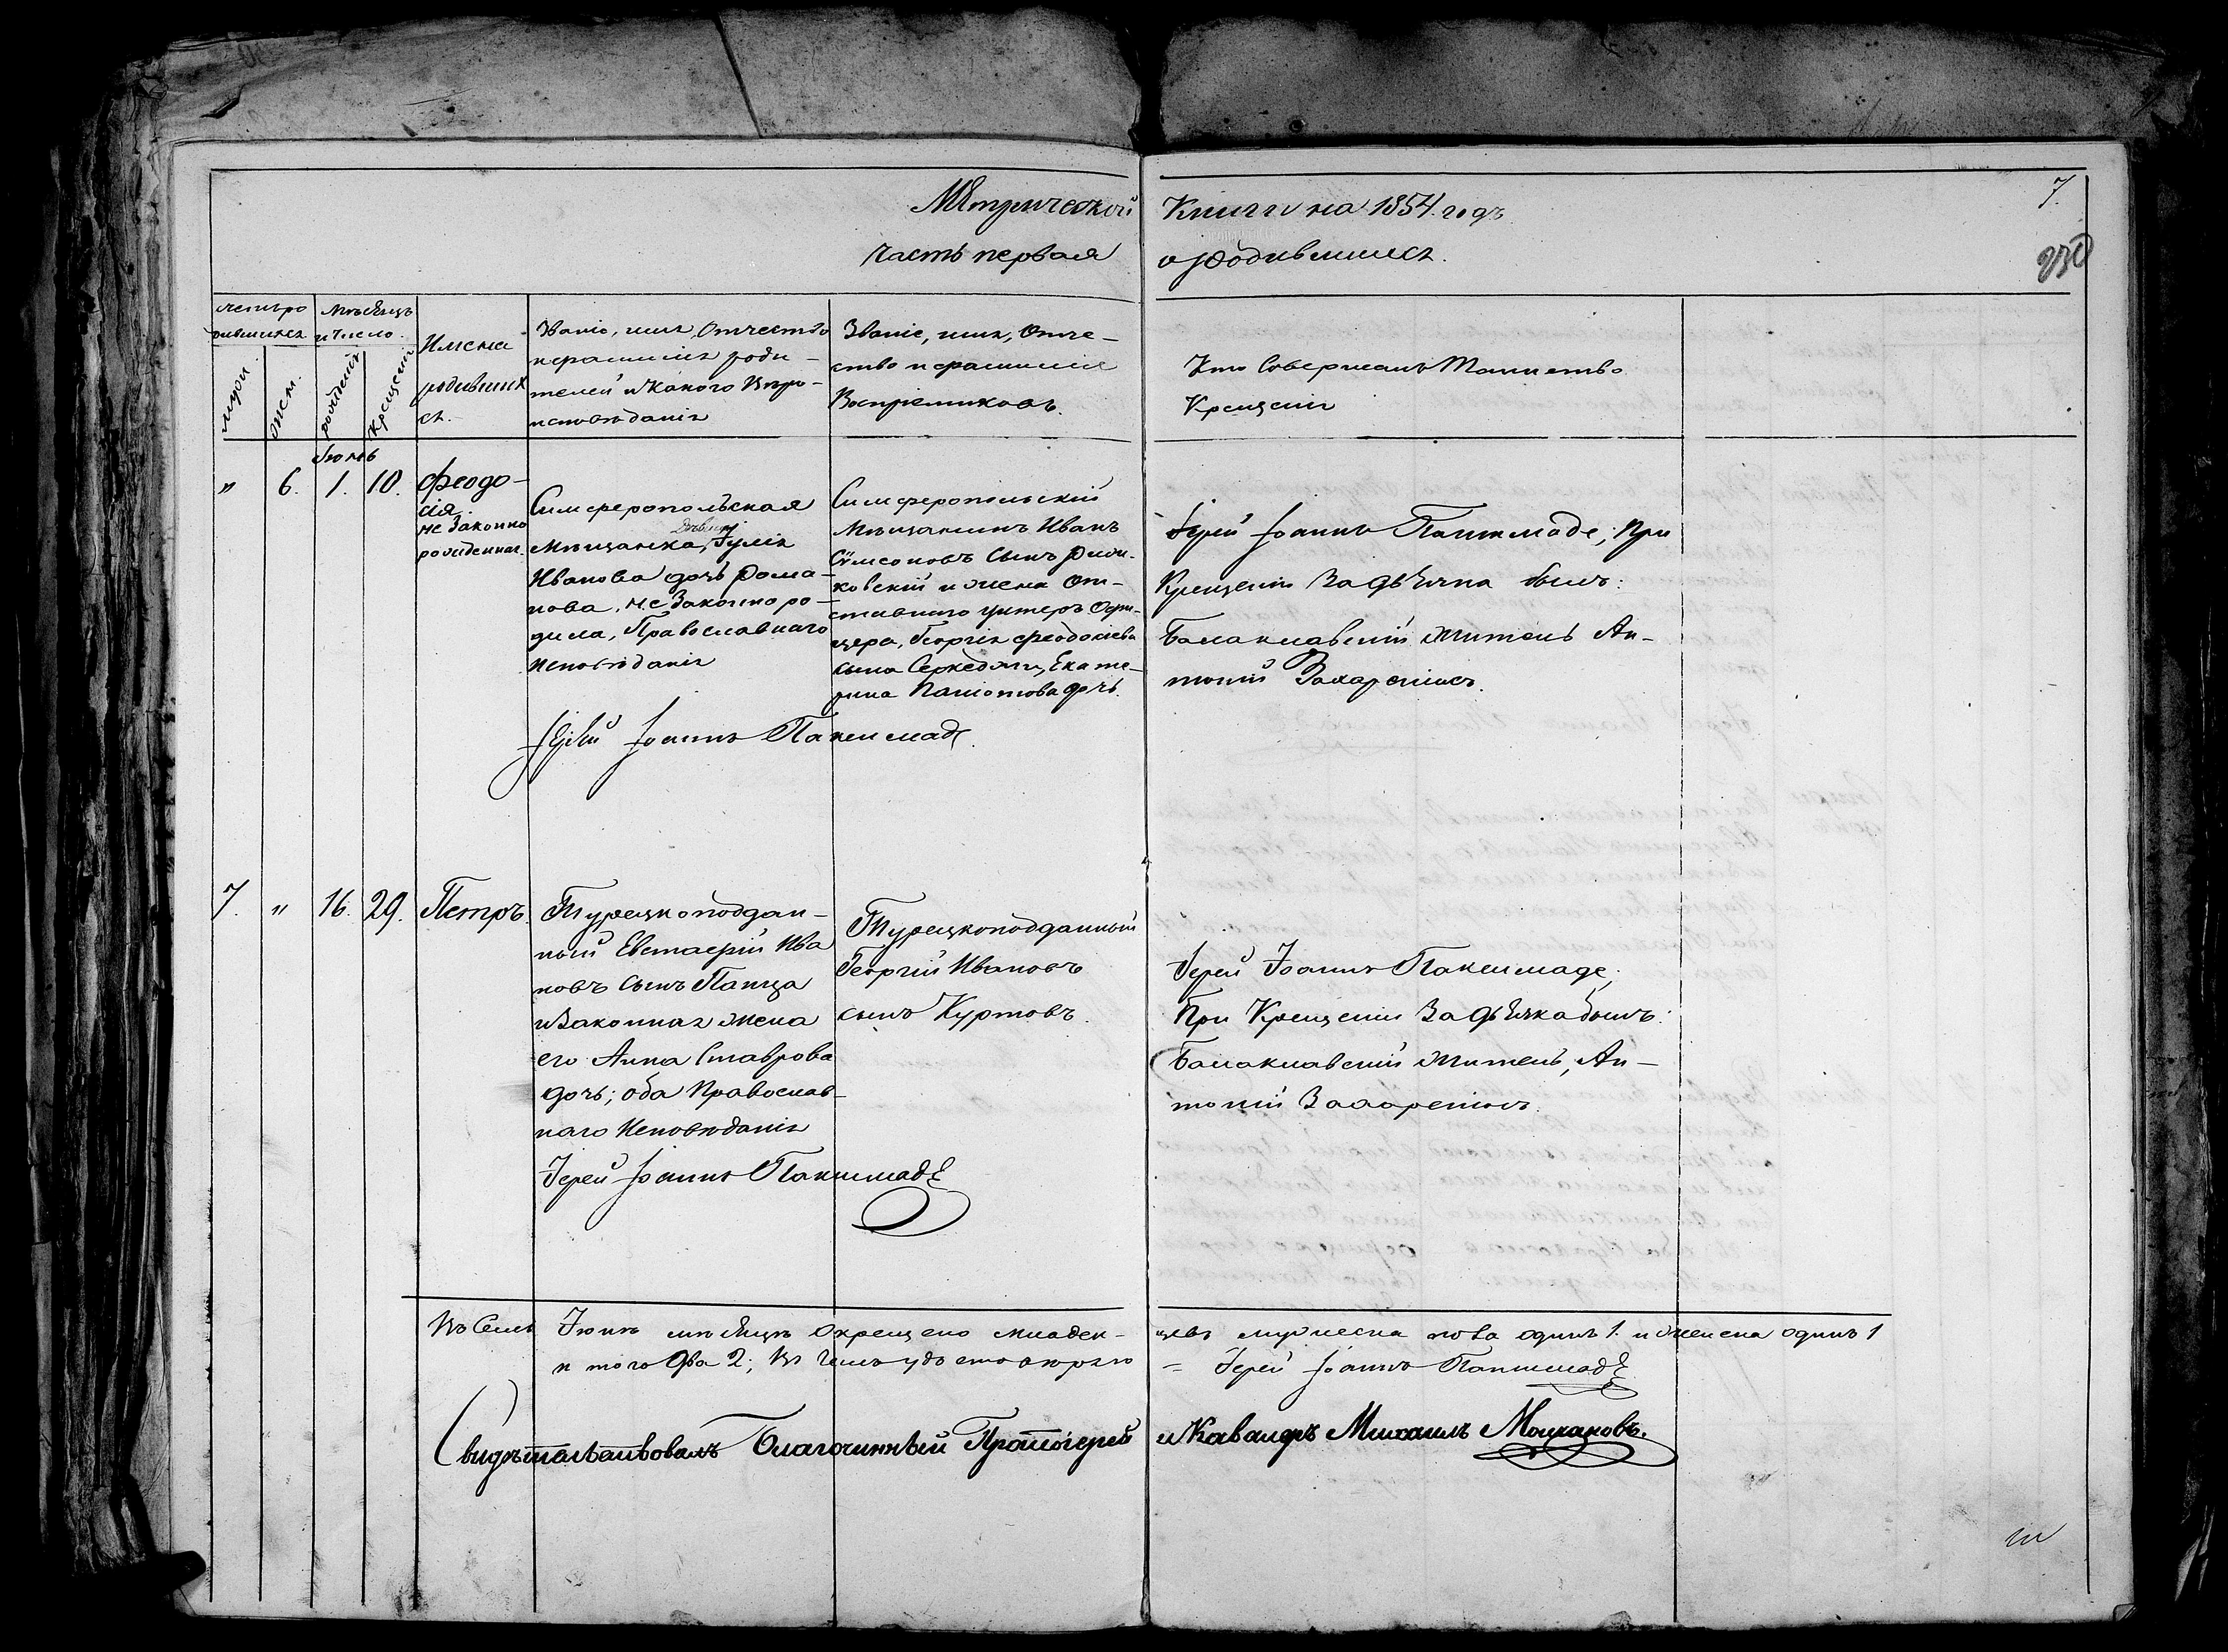 Метрической Книги на 1854. годъ
7.
часть первая о родившихся.
230
Счетъ ро
дившихся
Мѣсяцъ
и число.
муж.
жен.
рожденія
крещенія
Имена
родивших
ся.
Званіе, имя, Отчество
и фамилія роди-
телей и Какого Вѣро-
исповѣданія
Званіе, имя, Отче-
ство и фамилія
Воспріемниковъ.
Кто Совершалъ Таинство
Крещенія
Іюнь
" 6. 1. 10.
Феодо-
сія.
не Законно
рожденная.
Симферопольская
дѣвица
Мѣщанка, Іулія
Иванова дочь Рома-
нова, не Законно ро-
дила, Православнаго
Исповѣданія
Симферопольскій
Мѣщанинъ Иванъ
Сѵмеоновъ Сынъ
и жена От-
ставнаго Унтеръ Офи-
цера, Георгія Феодосіева
сына Екате-
рина дочь.
Іерей Іоаннъ Паксимаде; При
Крещеніи За дьячка былъ:
Балаклавскій житель Ан-
тоній
Іерей Іоаннъ Паксимаде.
7. " 16. 29. Петръ.
Турецкоподдан-
ный Евстафій Ива
новъ Сынъ Панца
и Законная жена
его Анна Ставрова
дочь; оба Православ-
наго Исповѣданія
Турецкоподданный
Георгій Ивановъ
сынъ Куртовъ.
Іерей Іоаннъ Паксимаде;
При Крещеніи За дьячка былъ:
Балаклавскій житель, Ан-
тоній
Іерей Іоаннъ Паксимаде
Въ Семъ Іюнѣ мѣсяцѣ Окрещено младен-
цевъ мужеска пола одинъ 1. и женска одинъ 1
итого два 2; Въ Чемъ удостовѣряю
= Іерей Іоаннъ Паксимаде
Свидѣтельствовалъ Благочинный Протоіерей и Кавалеръ Михаилъ